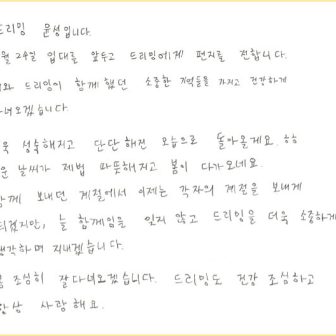 드리밍 윤성입니다.
월 24일 입대를 앞두고 드리밍에게 편지를 전합니다.
와 드리밍이 함께 했던 소중한 기억들을 가지고 건강하게
녀오겠습니다.
욱 성숙해지고 단단해진 모습으로 돌아올게요. ㅎㅎ
운 날씨가 제법 따뜻해지고 봄이 다가오네요.
함께 보내던 계절에서 이제는 각자의 계절을 보내게
되겠지만, 늘 함께임을 잊지 않고 드리밍을 더욱 소중하게
생각하며 지내겠습니다.
몸 조심히 잘 다녀오겠습니다. 드리밍도 건강 조심하고
항상 사랑해요.